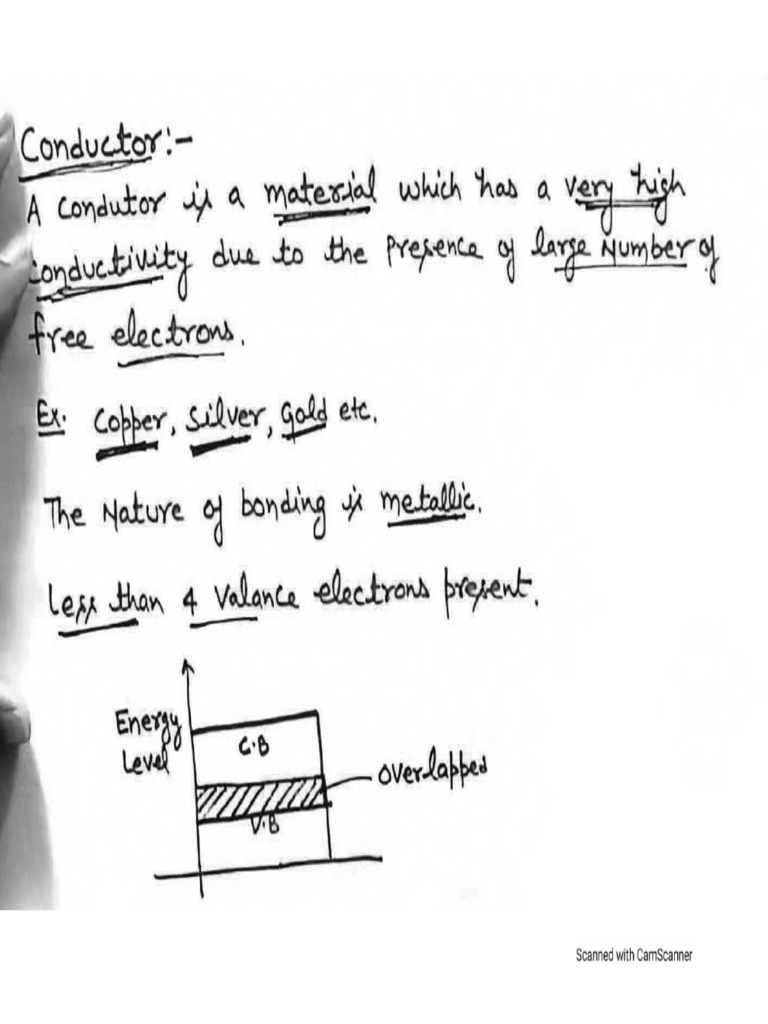 Conductor:-
A Condutor is a material which has a very high
Conductivity due to the presence of large Number of
free electrons.
Ex. Copper, Silver, Gold etc.
The Nature of bonding is metallic.
Less than 4 Valance electrons present.
Energy
Level
C.B
overlapped
V.B
Scanned with CamScanner